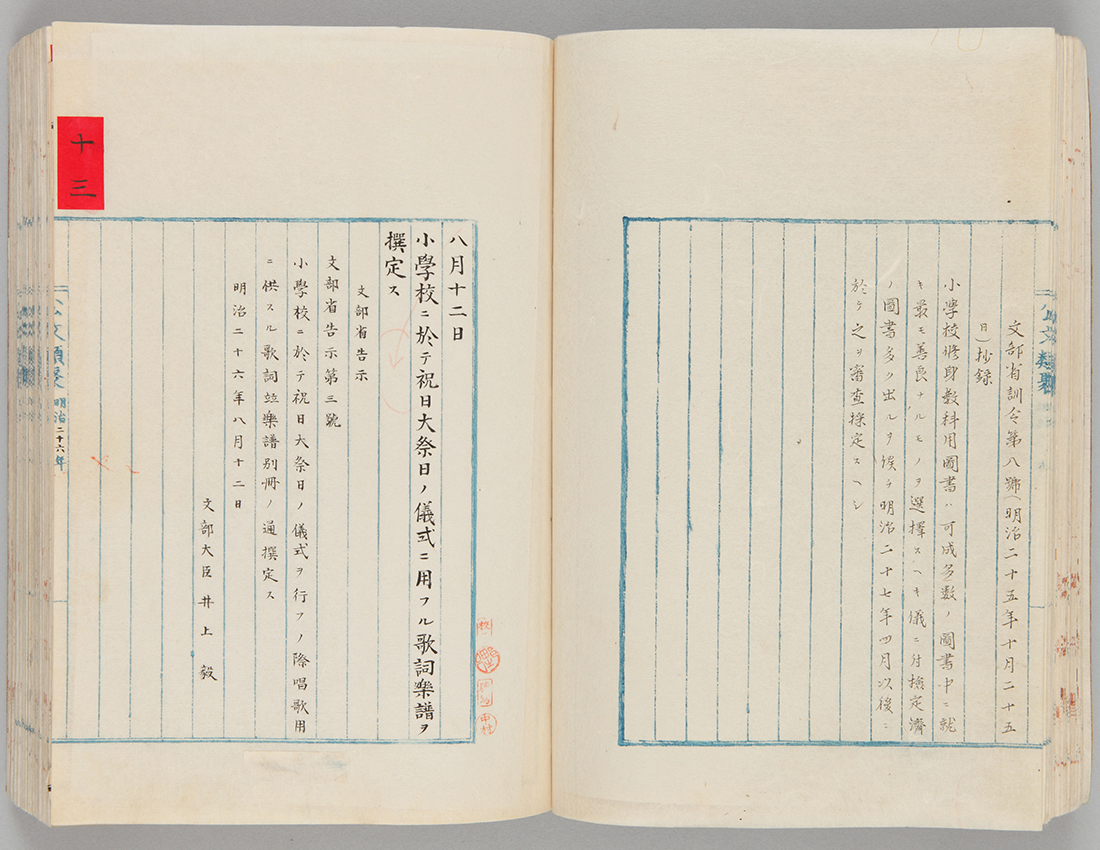 文部省訓令第八號(明治二十五年十月二十五
日)抄録
小學校修身教科用圖書ハ可成多數ノ圖書中ニ就
キ最モ善良ナルモノヲ選擇スヘキ儀ニ付檢定濟
ノ圖書多ク出ルヲ俟チ明治二十七年四月以後ニ
於テ之ヲ審査採定スヘシ
公文類聚
八月十二日
小學校ニ於テ祝日大祭日ノ儀式ニ用フル歌詞樂譜ヲ
撰定ス
文部省告示
文部省告示第三號
小學校ニ於テ祝日大祭日ノ儀式ヲ行フノ際唱歌用
ニ供スル歌詞並樂譜別冊ノ通撰定ス
明治二十六年八月十二日
文部大臣井上毅
十三
公文類聚 明治二十六年
中村